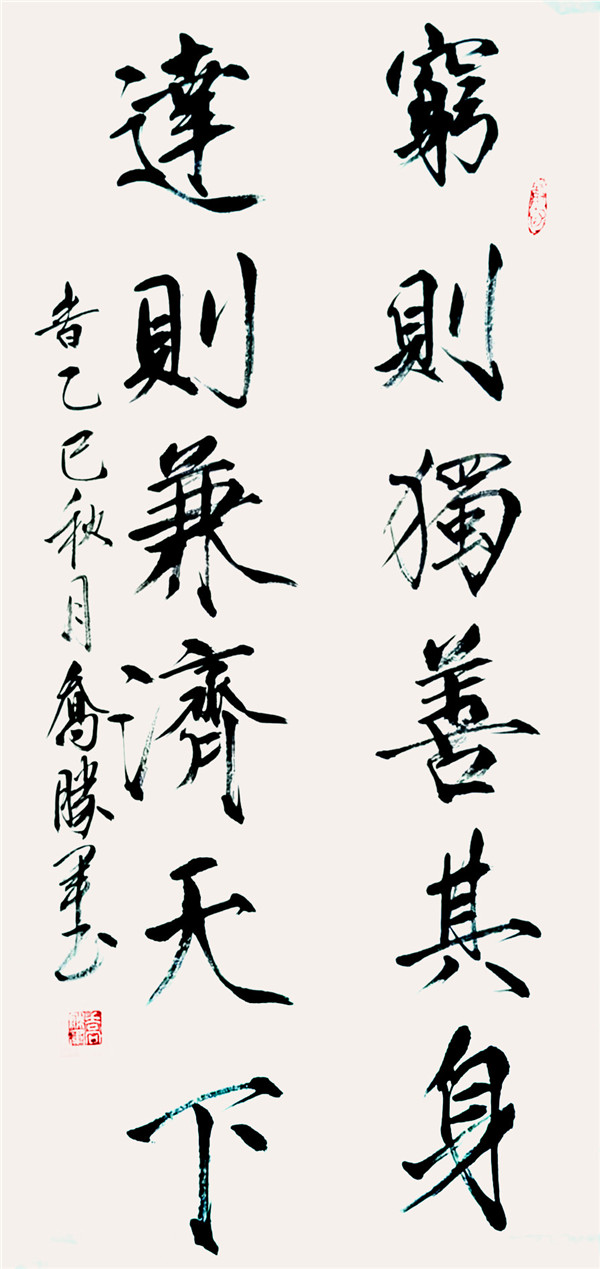 窮則獨善其身
達則兼濟天下
乙巳秋月喬勝軍书